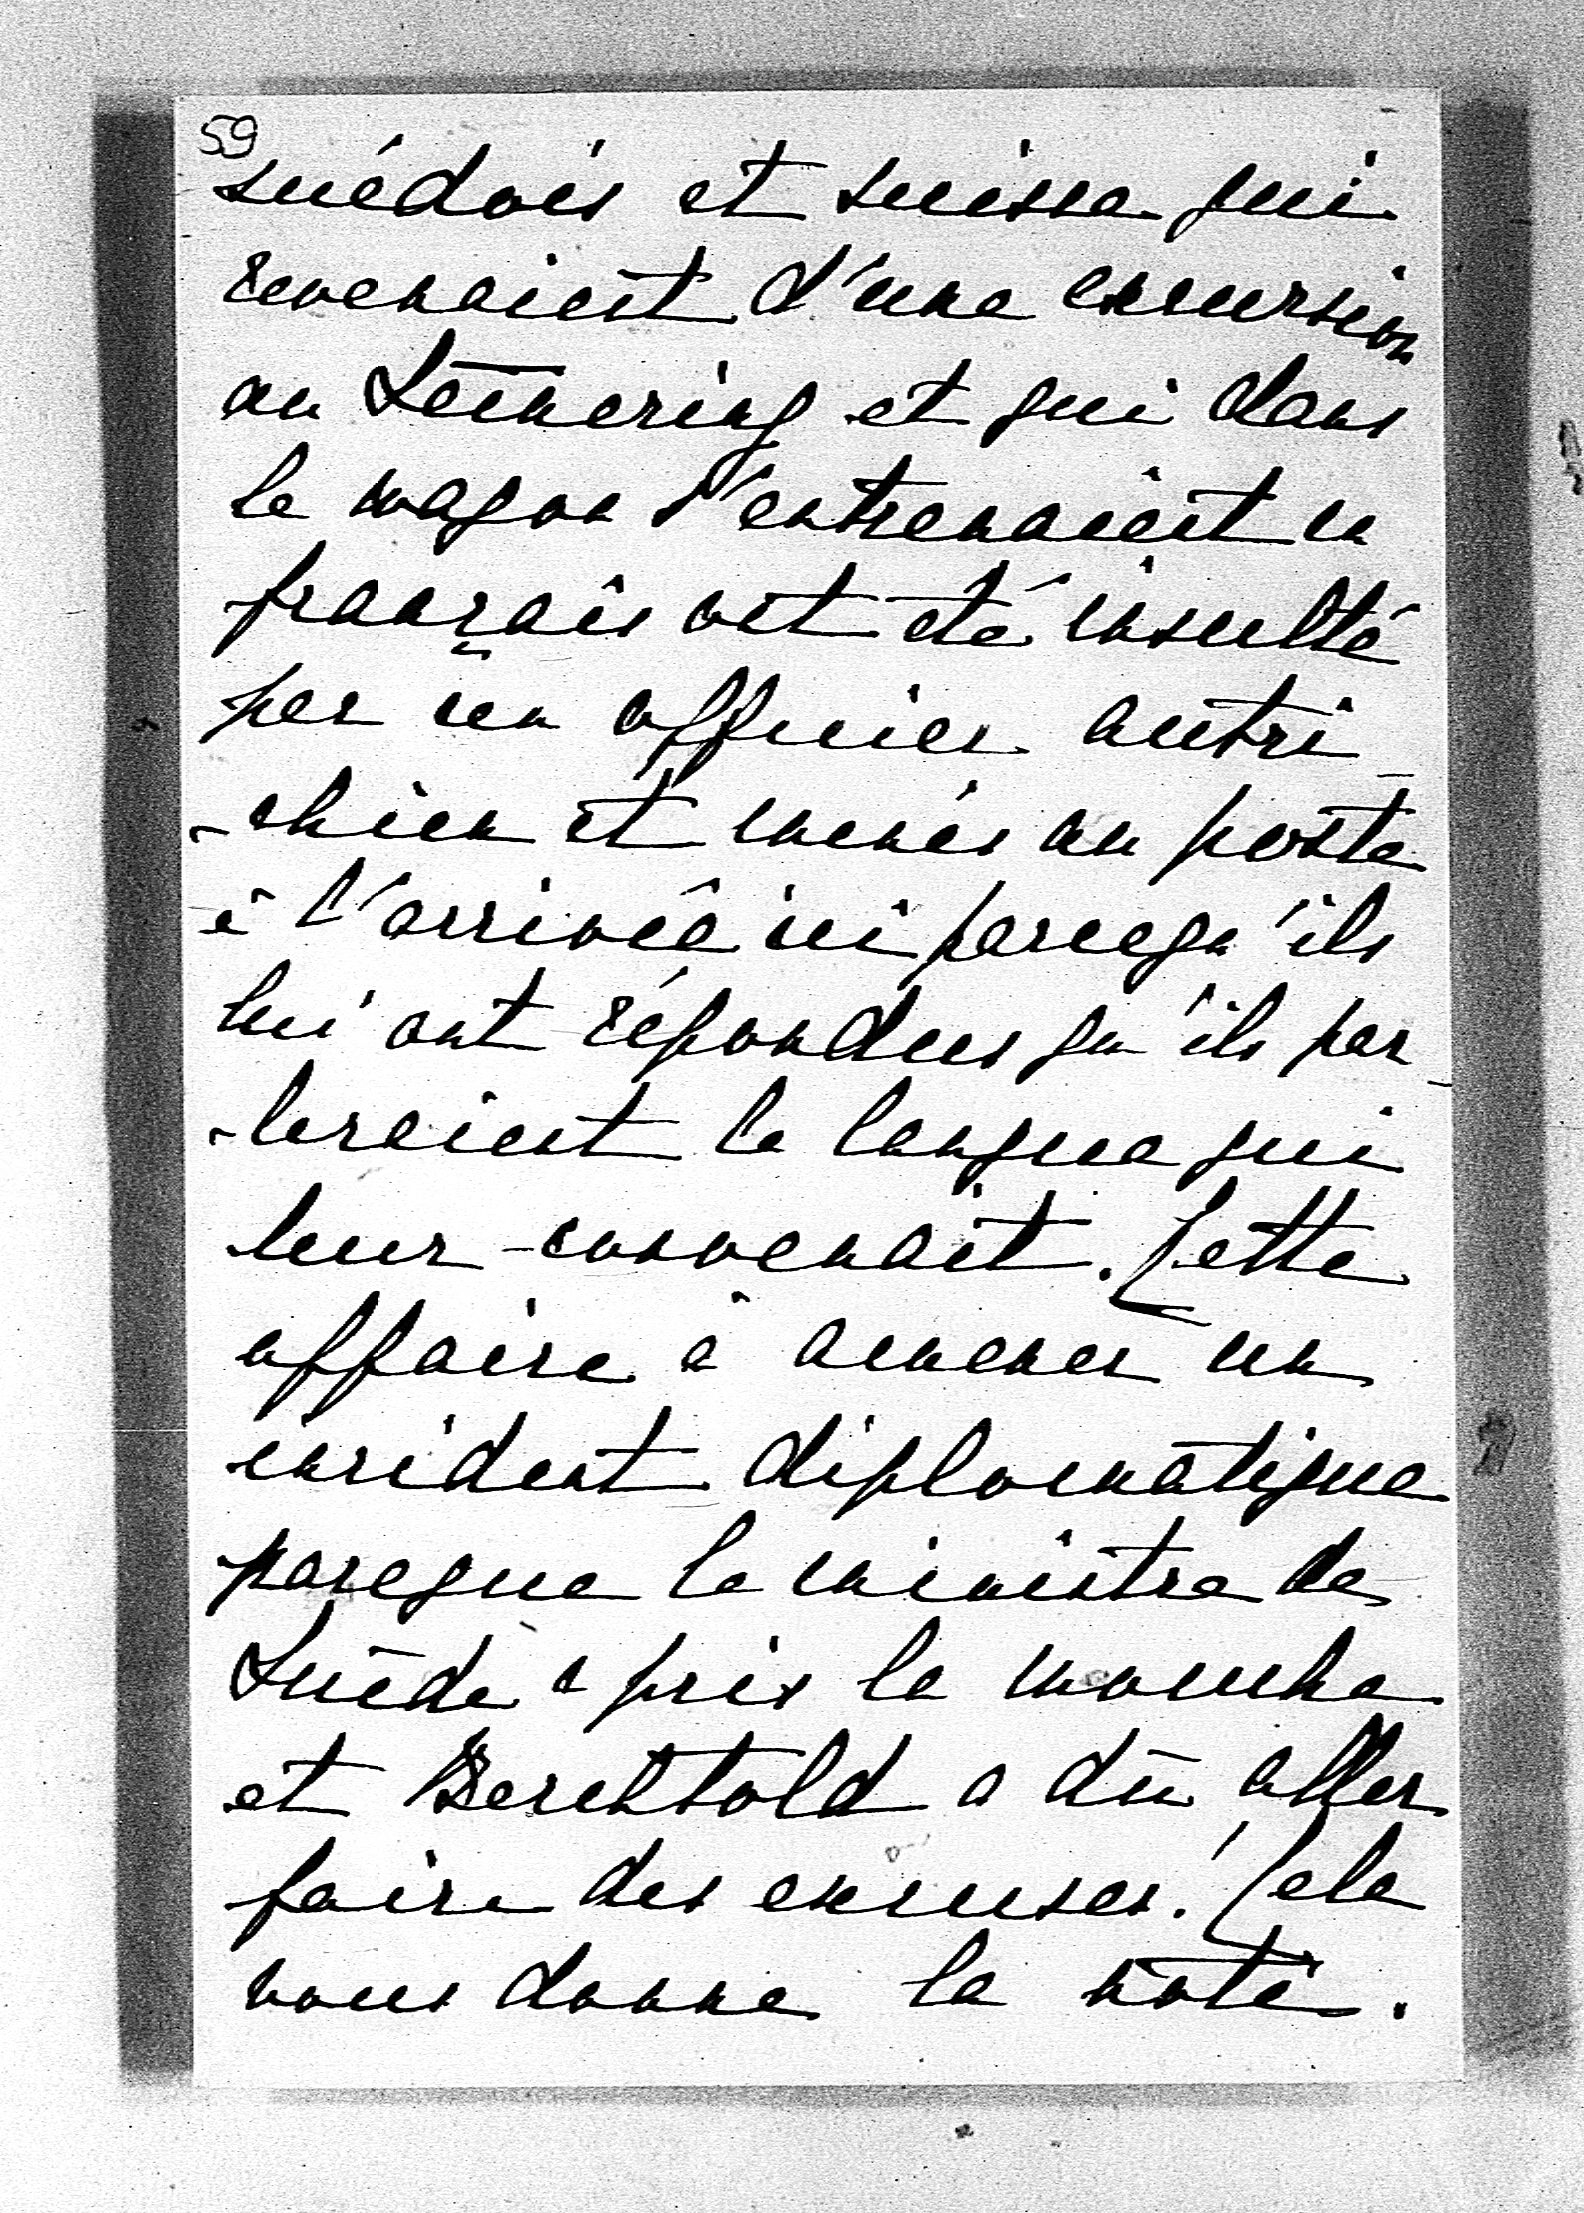 59
suédois et suisse qui
revenaient d'une excursion
au Semering et qui dans
le wagon s'entrenaient en
français ont été insulté
par un officier autri_
-chien et menés au poste
à l'arrivée ici parcequ'ils
lui ont répondus qu'ils par_
-leraient la langue qui
leur convenait. Cette
affaire à amener un
incident diplomatique
parceque le ministre de
Suède a pris la mouche
et Berchtold a dû aller
faire des excuses! Cela
vous donne la note.